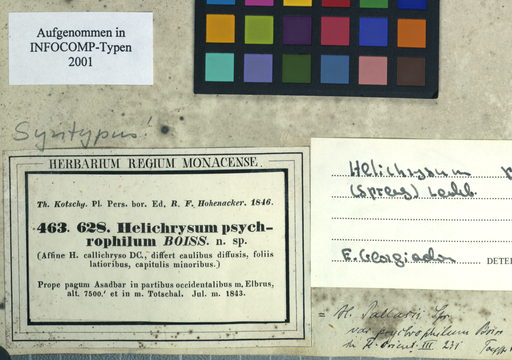 Aufgenommen in
INFOCOMP-Typen
2001
Syntypus!
HERBARIUM REGIUM MONACENSE.
Th. Kotschy. Pl. Pers. bor. Ed. R. F. Hohenacker. 1846.
463. 628. Helichrysum psych-
rophilum BOISS. n. sp.
(Affine H. callichryso DC., differt caulibus diffusis, foliis
latioribus, capitulis minoribus.)
Prope pagum Asadbar in partibus occidentalibus m. Elbrus,
alt. 7500.' et in m. Totschal. Jul. m. 1843.
Helichrysum
(Spreng) Ledeb.
E. Georgiadou
DETER
= H. Pallasii Spr.
var. psychrophilum Boiss
in F. Orient. III 231